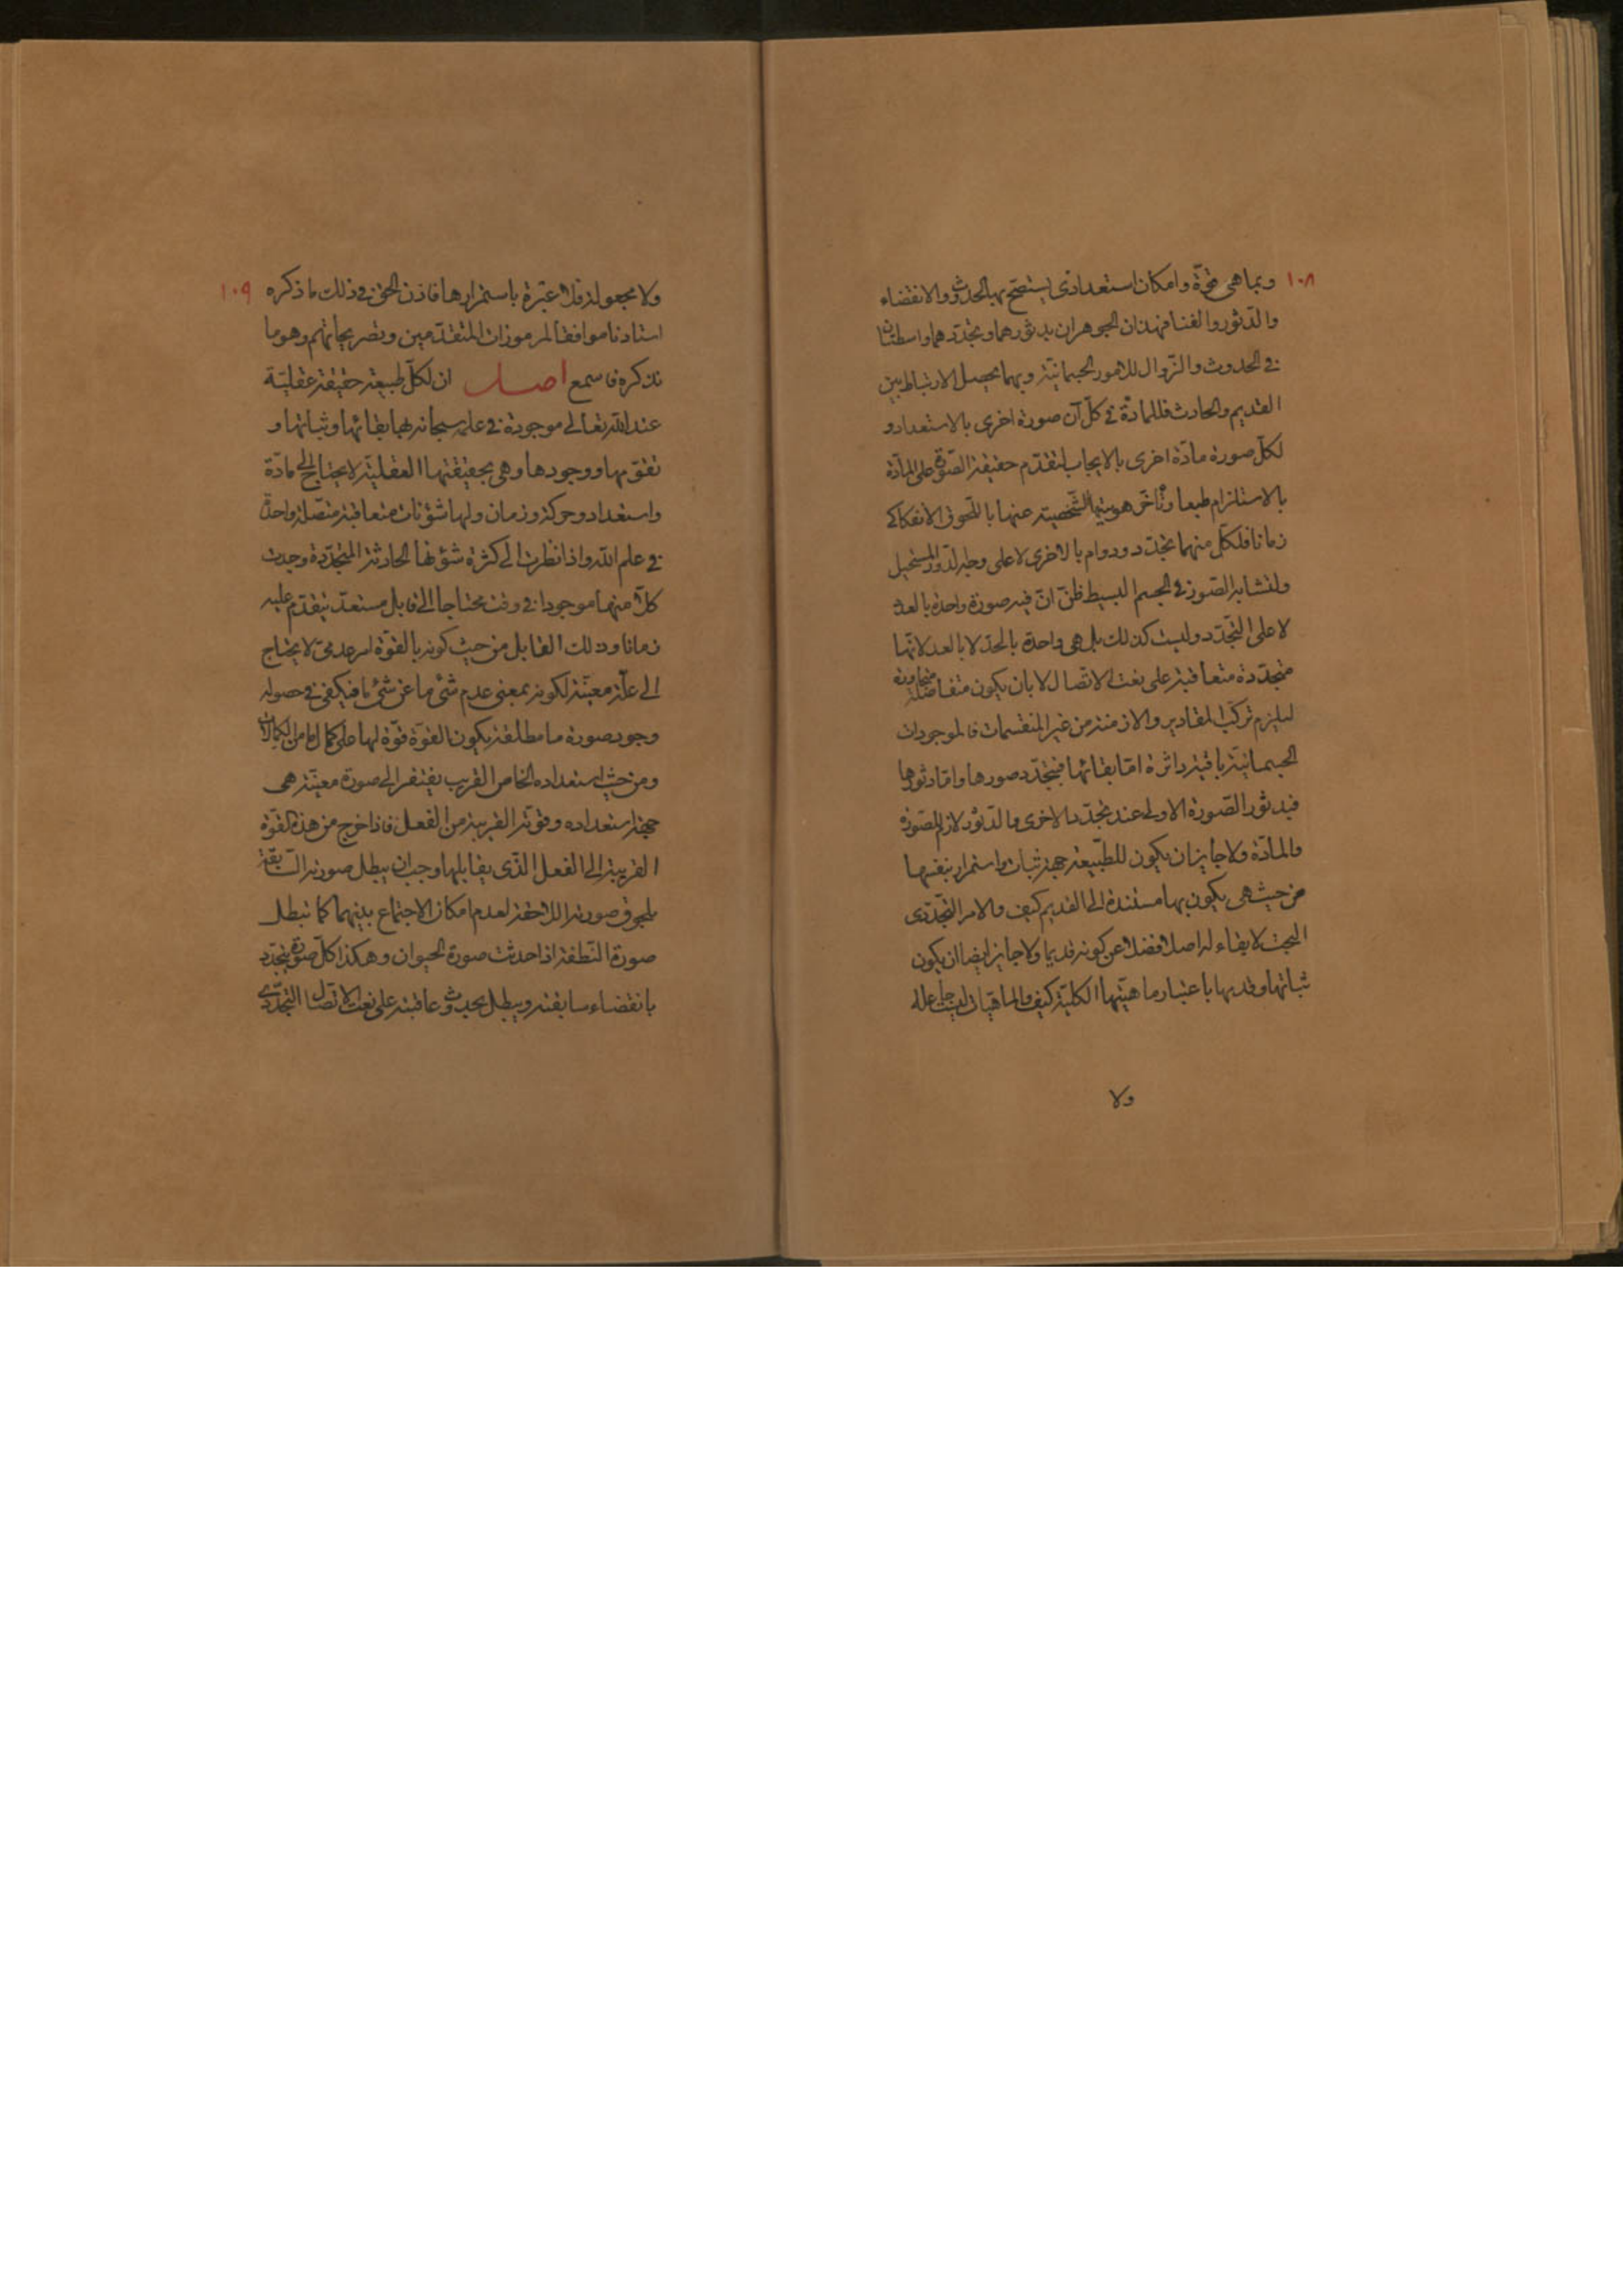 ١٠٨
وبما هى قوّة وامكان استعدادى يستصح بها الحدوث والانقضاء
والدّثور والفنا فهذان الجوهران بدثورهما وتجدّدهما واسطتان
فى الحدوث والزّوال للامور الجسمانيّة وبهما يحصل الارتباط بين
القديم والحادث فللمادّة فى كلّ آن صورة اخرى بالاستعداد و
لكلّ صورة مادّة اخرى بالايجاب لتقدّم حقيقة الصّورة على المادّة
بالاستلزام طبعا وتأخّر هويتها الشّخصيّة عنها باللّحوق الانفكاكى
زمانا فلكلّ منهما تجدّد ودوام بالاخرى لا على وجه الدّور المستحيل
ولتشابه الصّور فى الجسم البسيط ظنّ انّ فيه صورة واحدة بالعدد
لا على التّجدّد وليست كذلك بل هى واحدة بالحدّ لا بالعدد لانّها
متجدّدة متعاقبة على نعت الاتّصال لا بان يكون متفاصلة متجاورة
ليلزم تركّب المقادير والازمنة من غير المنقسمات فالموجودات
الجسمانيّة باقية داثرة امّا بقائها فبتجدّد صورها وامّا دثورها
فبدثور الصّورة الاولى عند تجدّد الاخرى فالدّثور لازم للصّورة
والمادّة ولا جايز ان يكون للطّبيعة جهة ثبات واستمرار بنفسها
من حيث هى يكون بها مستندة الى القديم كيف والامر التّجدّدى
البحت لا بقاء له اصلا فضلا عن كونه قديما ولا جايز ايضا ان يكون
ثباتها وقدمها باعتبار ماهيّتها الكليّة كيف والماهيّات ليست جاعلة
ولا
١٠٩
ولا مجعولة فلا عبرة باستمرارها فاذن الحقّ فى ذلك ما ذكره
استادنا موافقا لمرموزات المتقدّمين وتصريحاتهم وهو ما
نذكره فاسمع اصل ان لكلّ طبيعة حقيقة عقليّة
عند اللّه تعالى موجودة فى علمه سبحانه لها بقائها وثباتها و
تقوّمها ووجودها وهى بحقيقتها العقليّة لا يحتاج الى مادّة
واستعداد وحركة وزمان ولها شؤنات متعاقبة متّصلة واحدة
فى علم اللّه واذا نظرت الى كثرة شؤنها الحادثة المتجدّدة وجدت
كلّا منها موجودا فى وقت محتاجا الى قابل مستعدّ يتقدّم عليه
زمانا وذلك القابل من حيث كونه بالقوّة امر عدمىّ لا يحتاج
الى علّة معيّنة لكونه بمعنى عدم شئ ما عن شئ ما فيكفى فى حصوله
وجود صورة ما مطلقة يكون القوّة قوّة لها على كمال ما من الكمالات
ومن حيث استعداده الخاص القريب يفتقر الى صورة معيّنة هى
جهة استعداده وقوّته القريبة من الفعل فاذا خرج من هذه القوّة
القريبة الى الفعل الّذى يقابلها وجب ان يبطل صورته السّابقة
بلحوق صورته اللاحقة لعدم امكان الاجتماع بينهما كما تبطل
صورة النّطفة اذا حدثت صورة الحيوان وهكذا كلّ صورة يتجدّد
بانقضاء سابقته ويبطل بحدوث عاقبته على نعت الاتّصال التّجدّدى